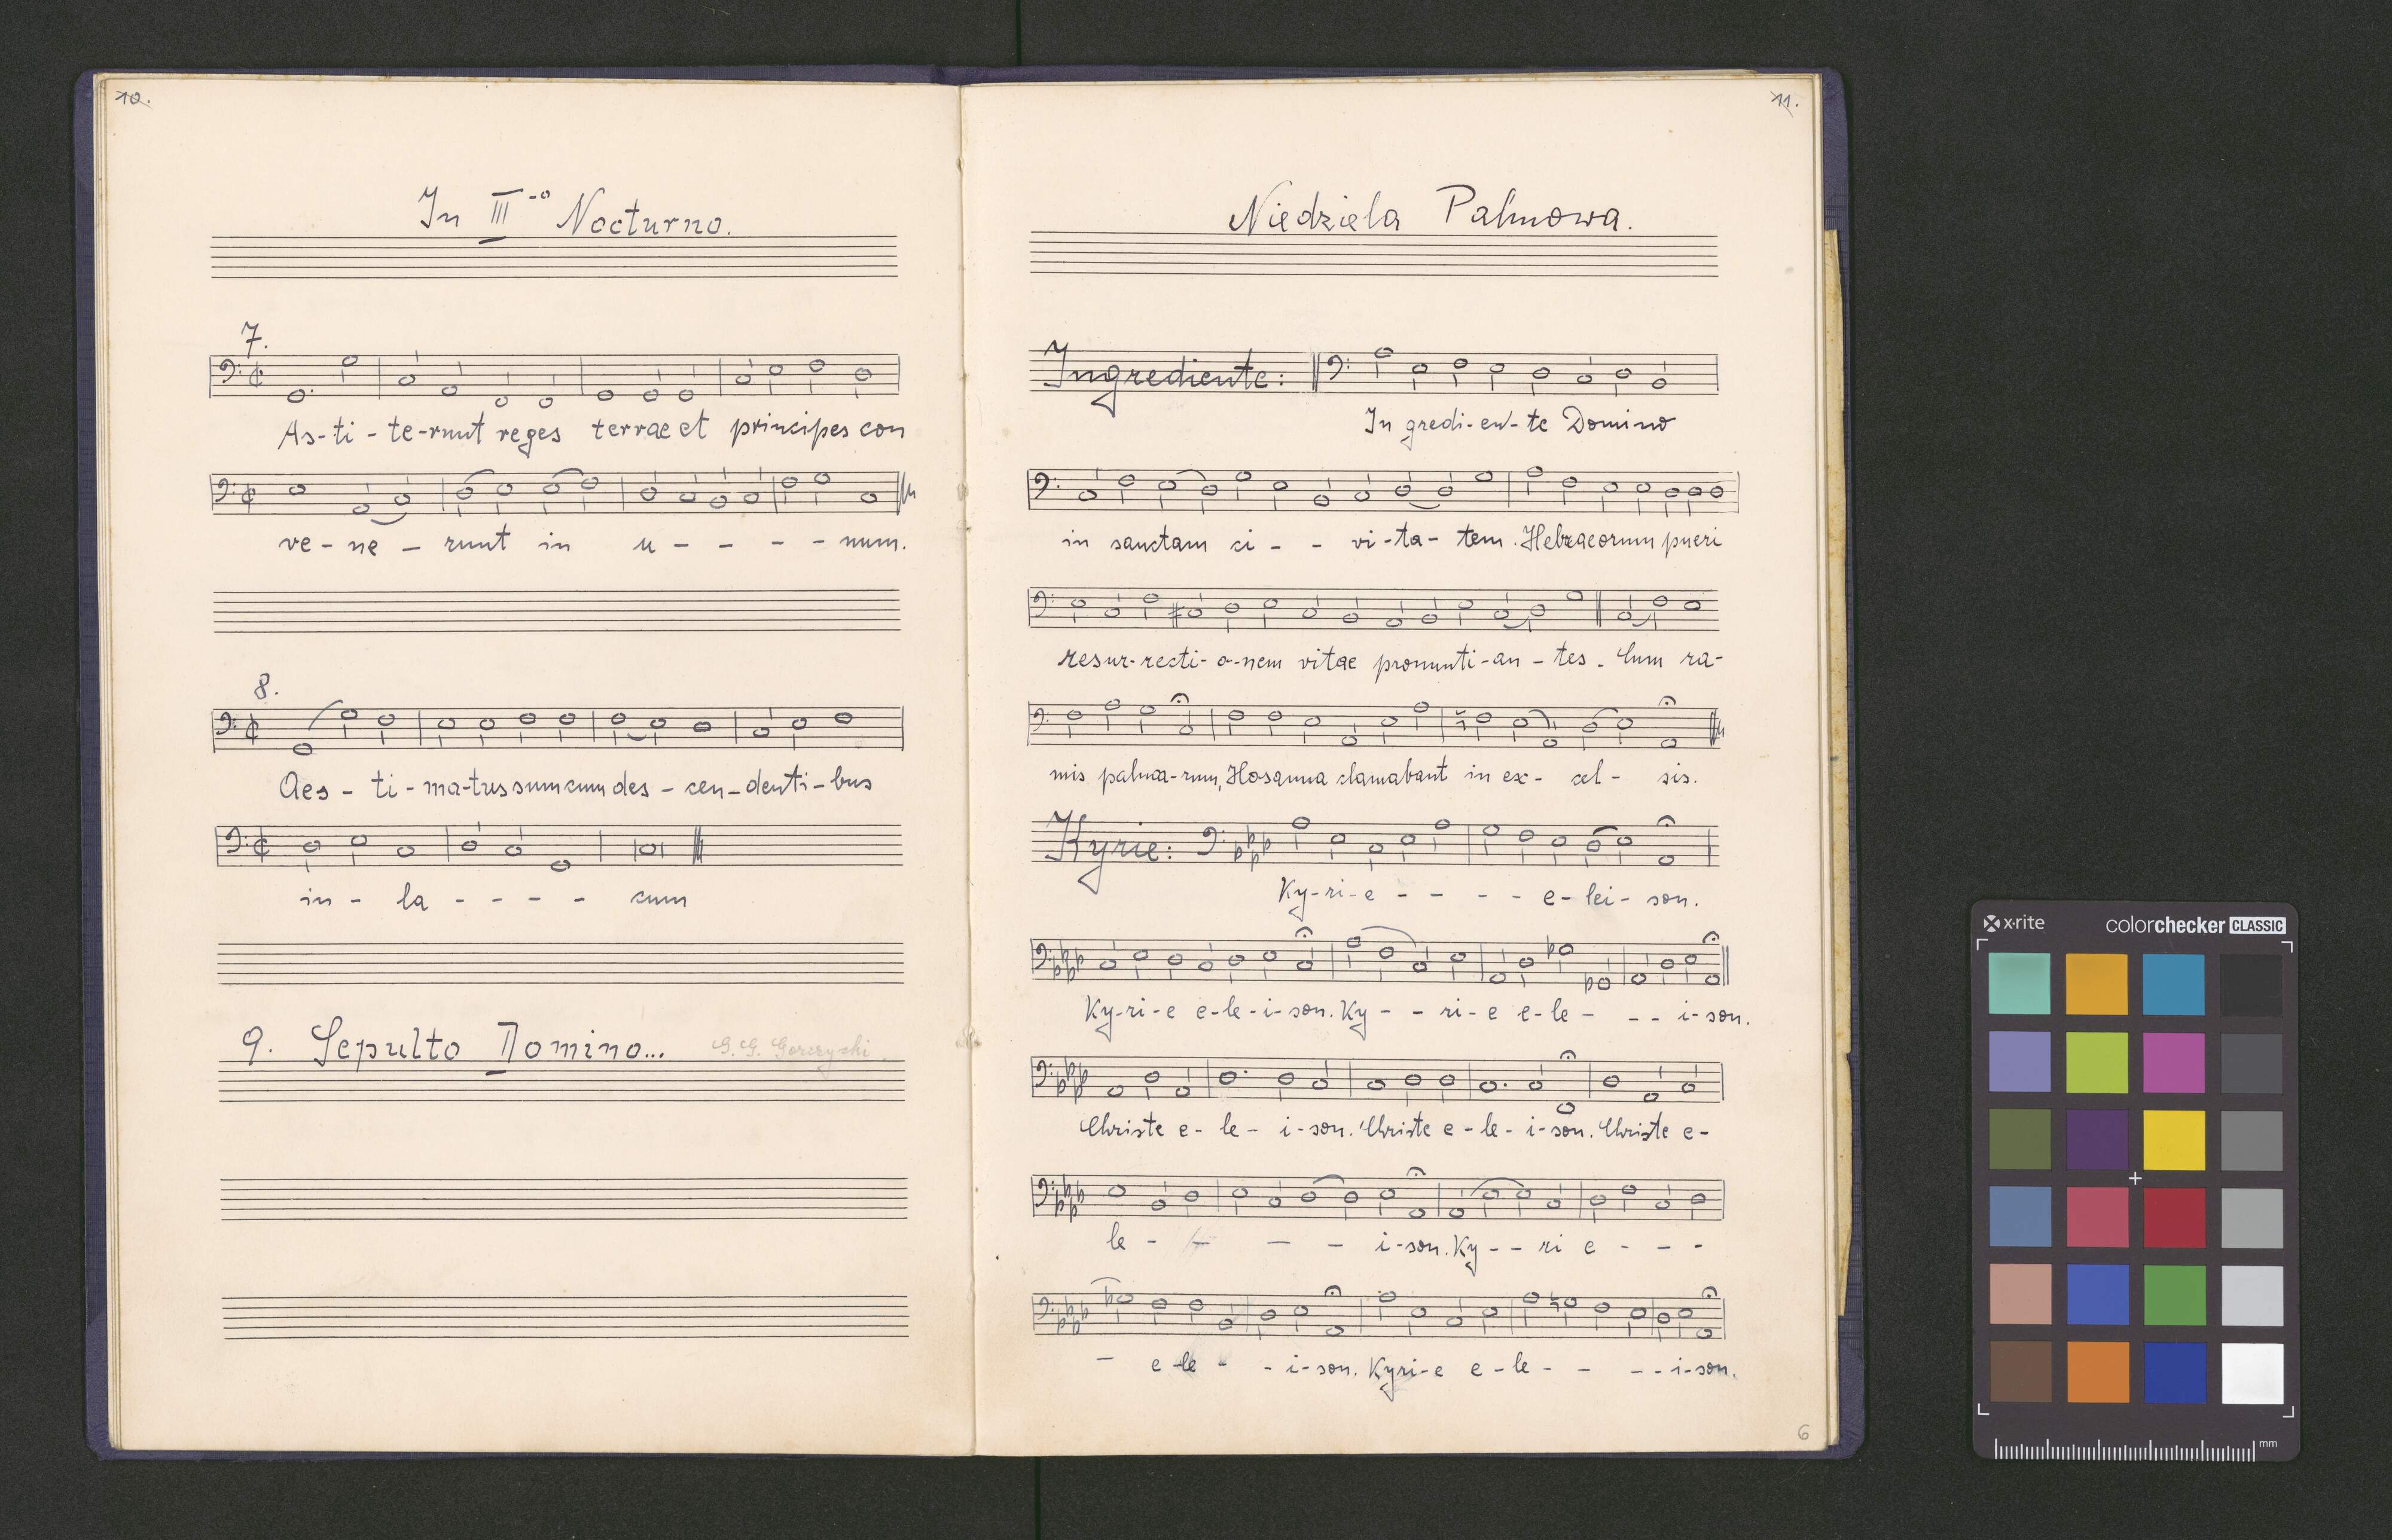 10.
In III-o Nocturno.
7.
As-ti-te-runt reges terrae et principes con
ve-ne-runt in u - - - - num.
8.
Aes-ti-ma-tus sum cum des-cen-denti-bus
in-la - - - - cum
9. Sepulto Domino...
G.G. Gorczycki
11.
Niedziela Palmowa.
Ingrediente:
In gredi-en-te Domino
in sanctam ci - - vi-ta-tem. Hebraeorum pueri
resur-recti-o-nem vitae pronunti-an-tes. Cum ra-
mis palma-rum, Hosanna clamabant in ex-cel-sis.
Kyrie:
Ky-ri-e - - - - e-lei-son.
Ky-ri-e e-le-i-son. Ky - - ri-e e-le - - - i-son.
Christe e-le-i-son. Christe e-le-i-son. Christe e-
le - - - - i-son. Ky - - ri e - - -
- e-le - - i-son. Kyri-e e-le - - - - i-son.
6
x-rite
colorchecker CLASSIC
mm